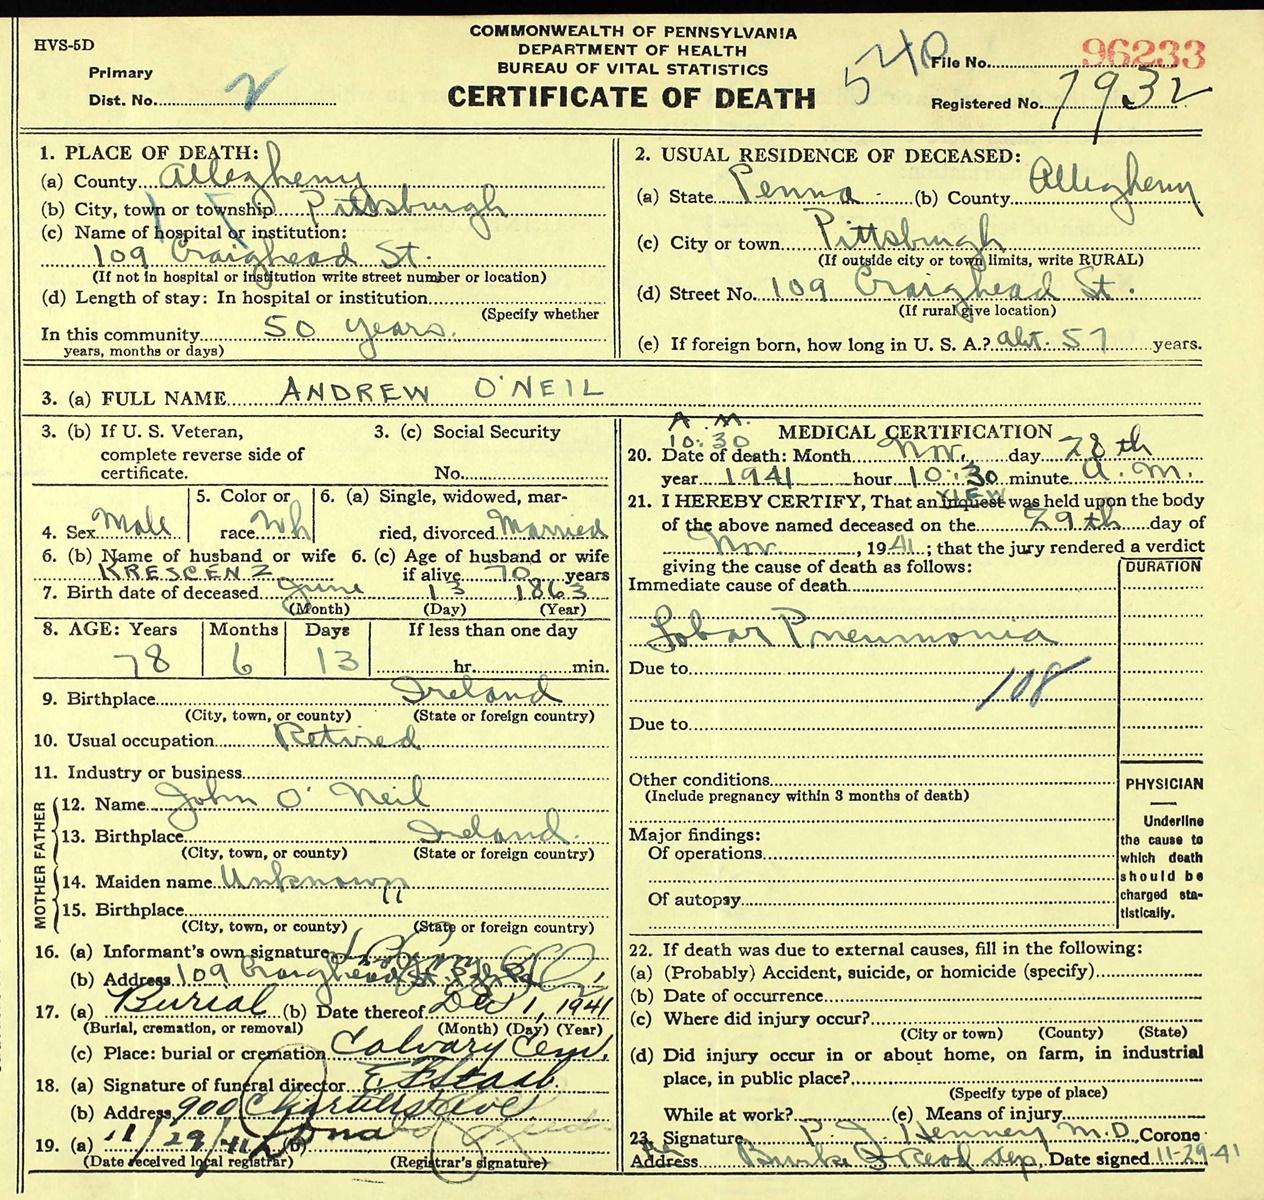 HVS-5D
COMMONWEALTH OF PENNSYLVANIA
DEPARTMENT OF HEALTH
BUREAU OF VITAL STATISTICS
CERTIFICATE OF DEATH
540
Primary
Dist. No. 2
File No. 96233
Registered No. 7932
1. PLACE OF DEATH:
(a) County Allegheny
(b) City, town or township Pittsburgh
(c) Name of hospital or institution:
109 Craighead St.
(If not in hospital or institution write street number or location)
(d) Length of stay: In hospital or institution
(Specify whether
In this community 50 years.
years, months or days)
2. USUAL RESIDENCE OF DECEASED:
(a) State Penna. (b) County Allegheny
(c) City or town Pittsburgh
(If outside city or town limits, write RURAL)
(d) Street No. 109 Craighead St.
(If rural give location)
(e) If foreign born, how long in U. S. A.? abt. 57 years.
3. (a) FULL NAME ANDREW O'NEIL
3. (b) If U. S. Veteran,
complete reverse side of
certificate.
3. (c) Social Security
No.
4. Sex Male
5. Color or
race Wh
6. (a) Single, widowed, mar-
ried, divorced Married
6. (b) Name of husband or wife
KRESCENZ
6. (c) Age of husband or wife
if alive 70 years
7. Birth date of deceased June 13 1863
(Month) (Day) (Year)
8. AGE: Years Months Days If less than one day
78 6 13 hr. min.
9. Birthplace Ireland
(City, town, or county) (State or foreign country)
10. Usual occupation Retired
11. Industry or business
FATHER
12. Name John O'Neil
13. Birthplace Ireland.
(City, town, or county) (State or foreign country)
MOTHER
14. Maiden name Unknown
15. Birthplace
(City, town, or county) (State or foreign country)
16. (a) Informant's own signature
(b) Address 109 Craighead St.
17. (a) Burial (b) Date thereof Dec 1, 1941
(Burial, cremation, or removal) (Month) (Day) (Year)
(c) Place: burial or cremation Calvary Cem.
18. (a) Signature of funeral director
(b) Address 900 Chartiers Ave
19. (a) 11/29/41 (b)
(Date received local registrar) (Registrar's signature)
A.M.
10:30
MEDICAL CERTIFICATION
20. Date of death: Month Nov. day 28th
year 1941 hour 10:30 minute A.M.
VIEW
21. I HEREBY CERTIFY, That an inquest was held upon the body
of the above named deceased on the 29th day of
Nov, 1941; that the jury rendered a verdict
giving the cause of death as follows:
DURATION
Immediate cause of death
Lobar Pneumonia
Due to
108
Due to
Other conditions
(Include pregnancy within 3 months of death)
Major findings:
Of operations
Of autopsy
PHYSICIAN
Underline
the cause to
which death
should be
charged sta-
tistically.
22. If death was due to external causes, fill in the following:
(a) (Probably) Accident, suicide, or homicide (specify)
(b) Date of occurrence
(c) Where did injury occur?
(City or town) (County) (State)
(d) Did injury occur in or about home, on farm, in industrial
place, in public place?
(Specify type of place)
While at work? (e) Means of injury
23. Signature P. J. Henney M.D., Corone
Address Dep. Date signed 11-29-41